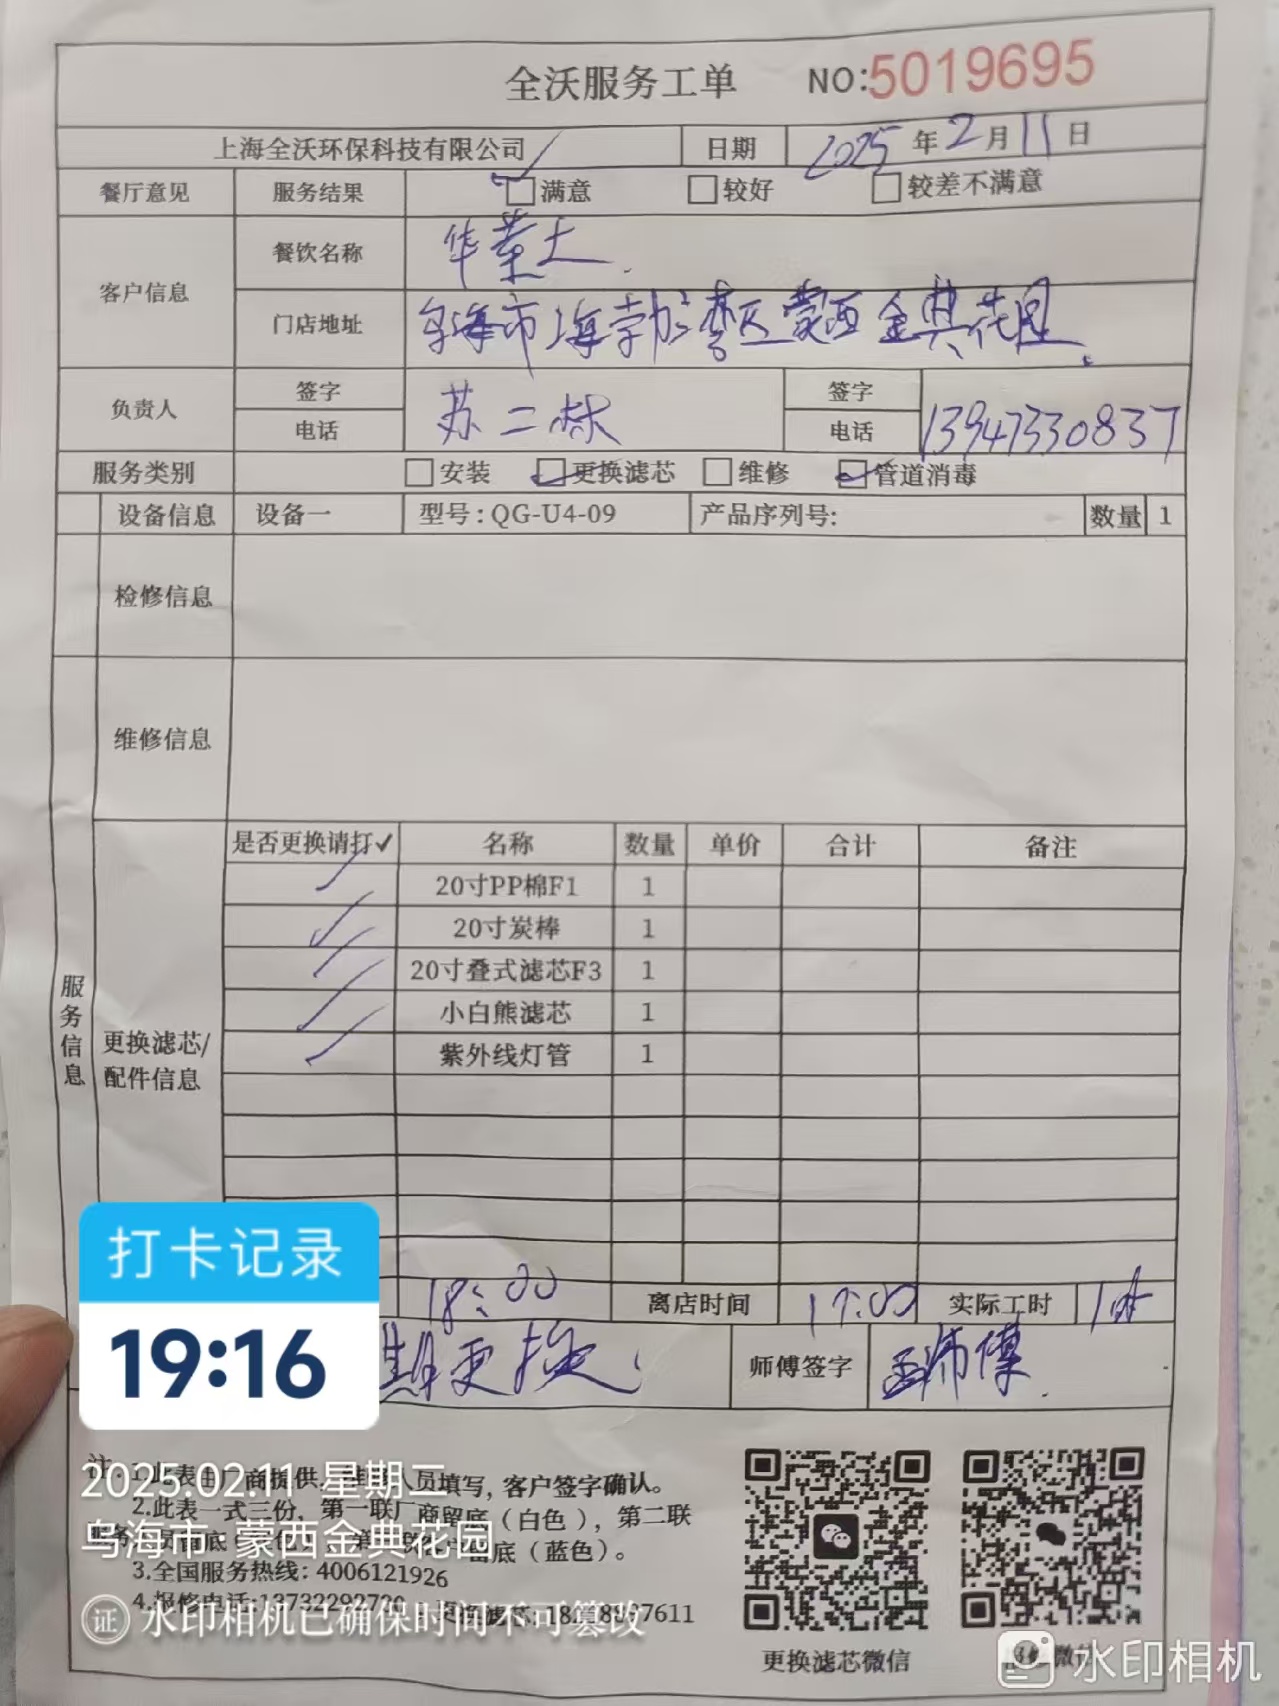 全沃服务工单 NO:5019695
上海全沃环保科技有限公司 日期 2025年2月11日
餐厅意见 服务结果 满意 较好 较差不满意
客户信息 餐饮名称 华莱士
门店地址 乌海市海勃湾区蒙西金典花园
负责人 签字 电话 苏二林 签字 电话 13947330837
服务类别 安装 更换滤芯 维修 管道消毒
设备信息 设备一 型号:QG-U4-09 产品序列号: 数量 1
检修信息
维修信息
服务信息
更换滤芯/
配件信息
是否更换请打✓ 名称 数量 单价 合计 备注
✓ 20寸PP棉F1 1
✓ 20寸炭棒 1
✓ 20寸叠式滤芯F3 1
✓ 小白熊滤芯 1
✓ 紫外线灯管 1
18:00 离店时间 17:00 实际工时 1
期更换 师傅签字 师傅
打卡记录
19:16
2025.02.11 星期二
乌海市·蒙西金典花园
注:1.此表由厂商提供, 员填写, 客户签字确认。
2.此表一式三份, 第一联厂商留底(白色), 第二联
留底(蓝色)。
3.全国服务热线: 4006121926
4.报修电话:
证 水印相机已确保时间不可篡改
更换滤芯微信
水印相机